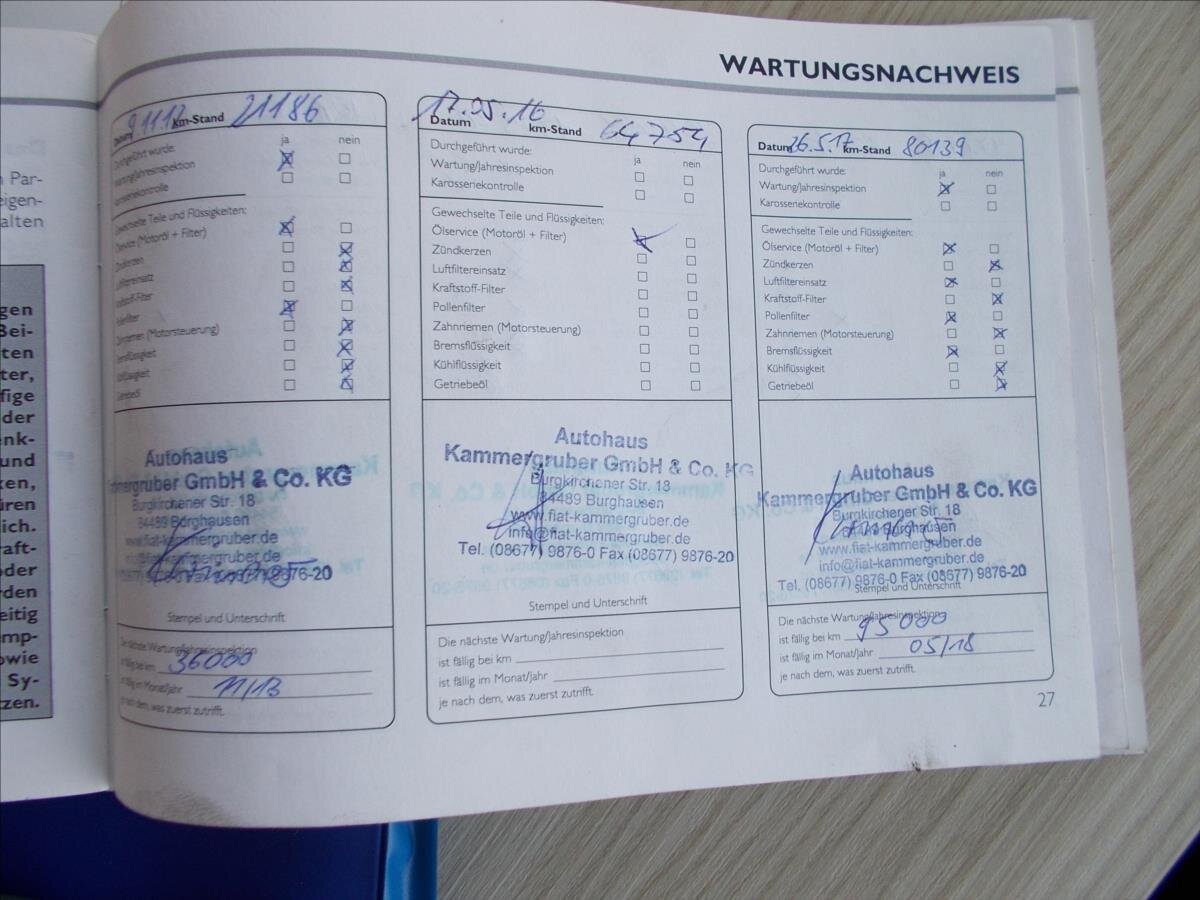 n Par-
eigen-
alten
gen
Bei-
ten
ter,
fige
der
nk-
und
ken,
üren
lich.
raft-
oder
rden
zeitig
mp-
owie
Sy-
zen.
WARTUNGSNACHWEIS
Datum 9.11.12 km-Stand 21186
Durchgeführt wurde: ja nein
Wartung/Jahresinspektion
Karosseriekontrolle
Gewechselte Teile und Flüssigkeiten:
Ölservice (Motoröl + Filter)
Zündkerzen
Luftfiltereinsatz
Kraftstoff-Filter
Pollenfilter
Zahnriemen (Motorsteuerung)
Bremsflüssigkeit
Kühlflüssigkeit
Getriebeöl
Autohaus
Kammergruber GmbH & Co. KG
Burgkirchener Str. 18
84489 Burghausen
www.fiat-kammergruber.de
info@fiat-kammergruber.de
9876-20
Stempel und Unterschrift
Die nächste Wartung/Jahresinspektion
ist fällig bei km 36000
ist fällig im Monat/Jahr 11/13
je nach dem, was zuerst zutrifft.
17.05.16
Datum km-Stand 64754
Durchgeführt wurde: ja nein
Wartung/Jahresinspektion
Karosseriekontrolle
Gewechselte Teile und Flüssigkeiten:
Ölservice (Motoröl + Filter)
Zündkerzen
Luftfiltereinsatz
Kraftstoff-Filter
Pollenfilter
Zahnriemen (Motorsteuerung)
Bremsflüssigkeit
Kühlflüssigkeit
Getriebeöl
Autohaus
Kammergruber GmbH & Co. KG
Burgkirchener Str. 18
84489 Burghausen
www.fiat-kammergruber.de
info@fiat-kammergruber.de
Tel. (08677) 9876-0 Fax (08677) 9876-20
Stempel und Unterschrift
Die nächste Wartung/Jahresinspektion
ist fällig bei km
ist fällig im Monat/Jahr
je nach dem, was zuerst zutrifft.
Datum 26.5.17 km-Stand 80139
Durchgeführt wurde: ja nein
Wartung/Jahresinspektion
Karosseriekontrolle
Gewechselte Teile und Flüssigkeiten:
Ölservice (Motoröl + Filter)
Zündkerzen
Luftfiltereinsatz
Kraftstoff-Filter
Pollenfilter
Zahnriemen (Motorsteuerung)
Bremsflüssigkeit
Kühlflüssigkeit
Getriebeöl
Autohaus
Kammergruber GmbH & Co. KG
Burgkirchener Str. 18
84489 Burghausen
www.fiat-kammergruber.de
info@fiat-kammergruber.de
Tel. (08677) 9876-0 Fax (08677) 9876-20
Stempel und Unterschrift
Die nächste Wartung/Jahresinspektion
ist fällig bei km 95000
ist fällig im Monat/Jahr 05/18
je nach dem, was zuerst zutrifft.
27